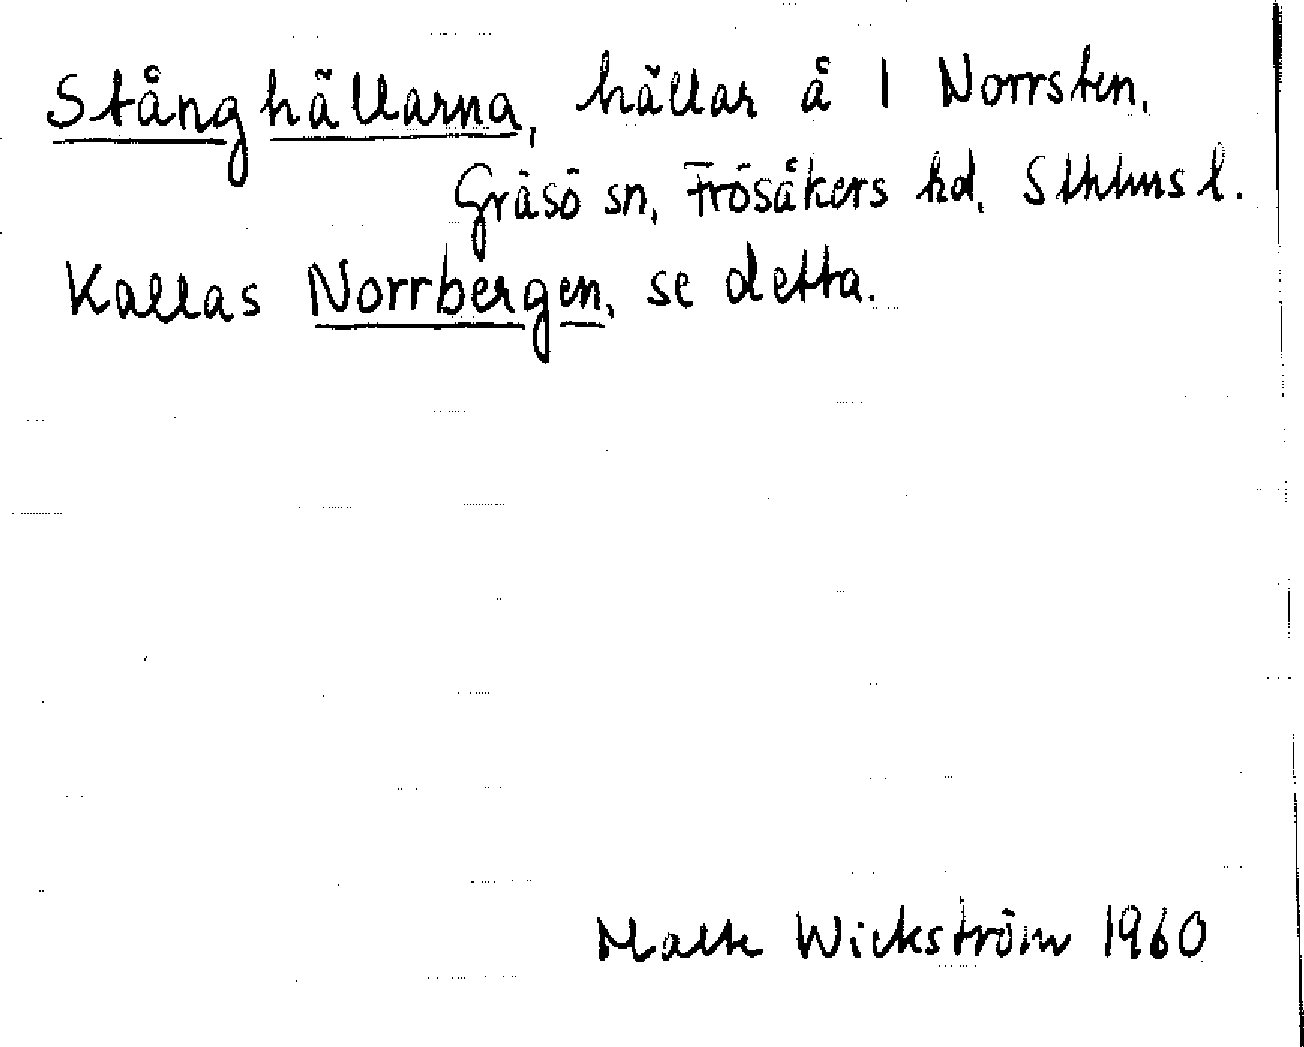 Stånghällarna, hällar å 1 Norrsten,
Gräsö sn, Frösåkers hd, Sthlms l.
Kallas Norrbergen, se detta.
Malte Wickström 1960